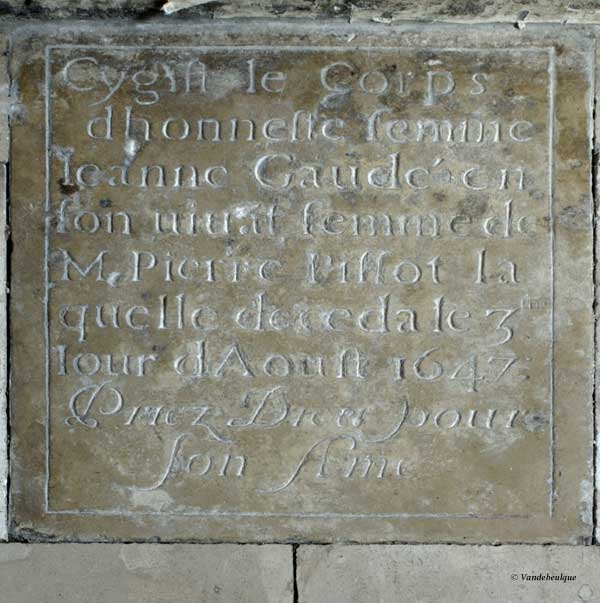 Cy gist le Corps
dhonneste femme
Ieanne Gaudé en
son uiuat femme de
Me Pierre Pissot la
quelle deceda le 3me
Iour d'Aoust 1647
Priez Dieu pour
son Ame
© Vandebeulque